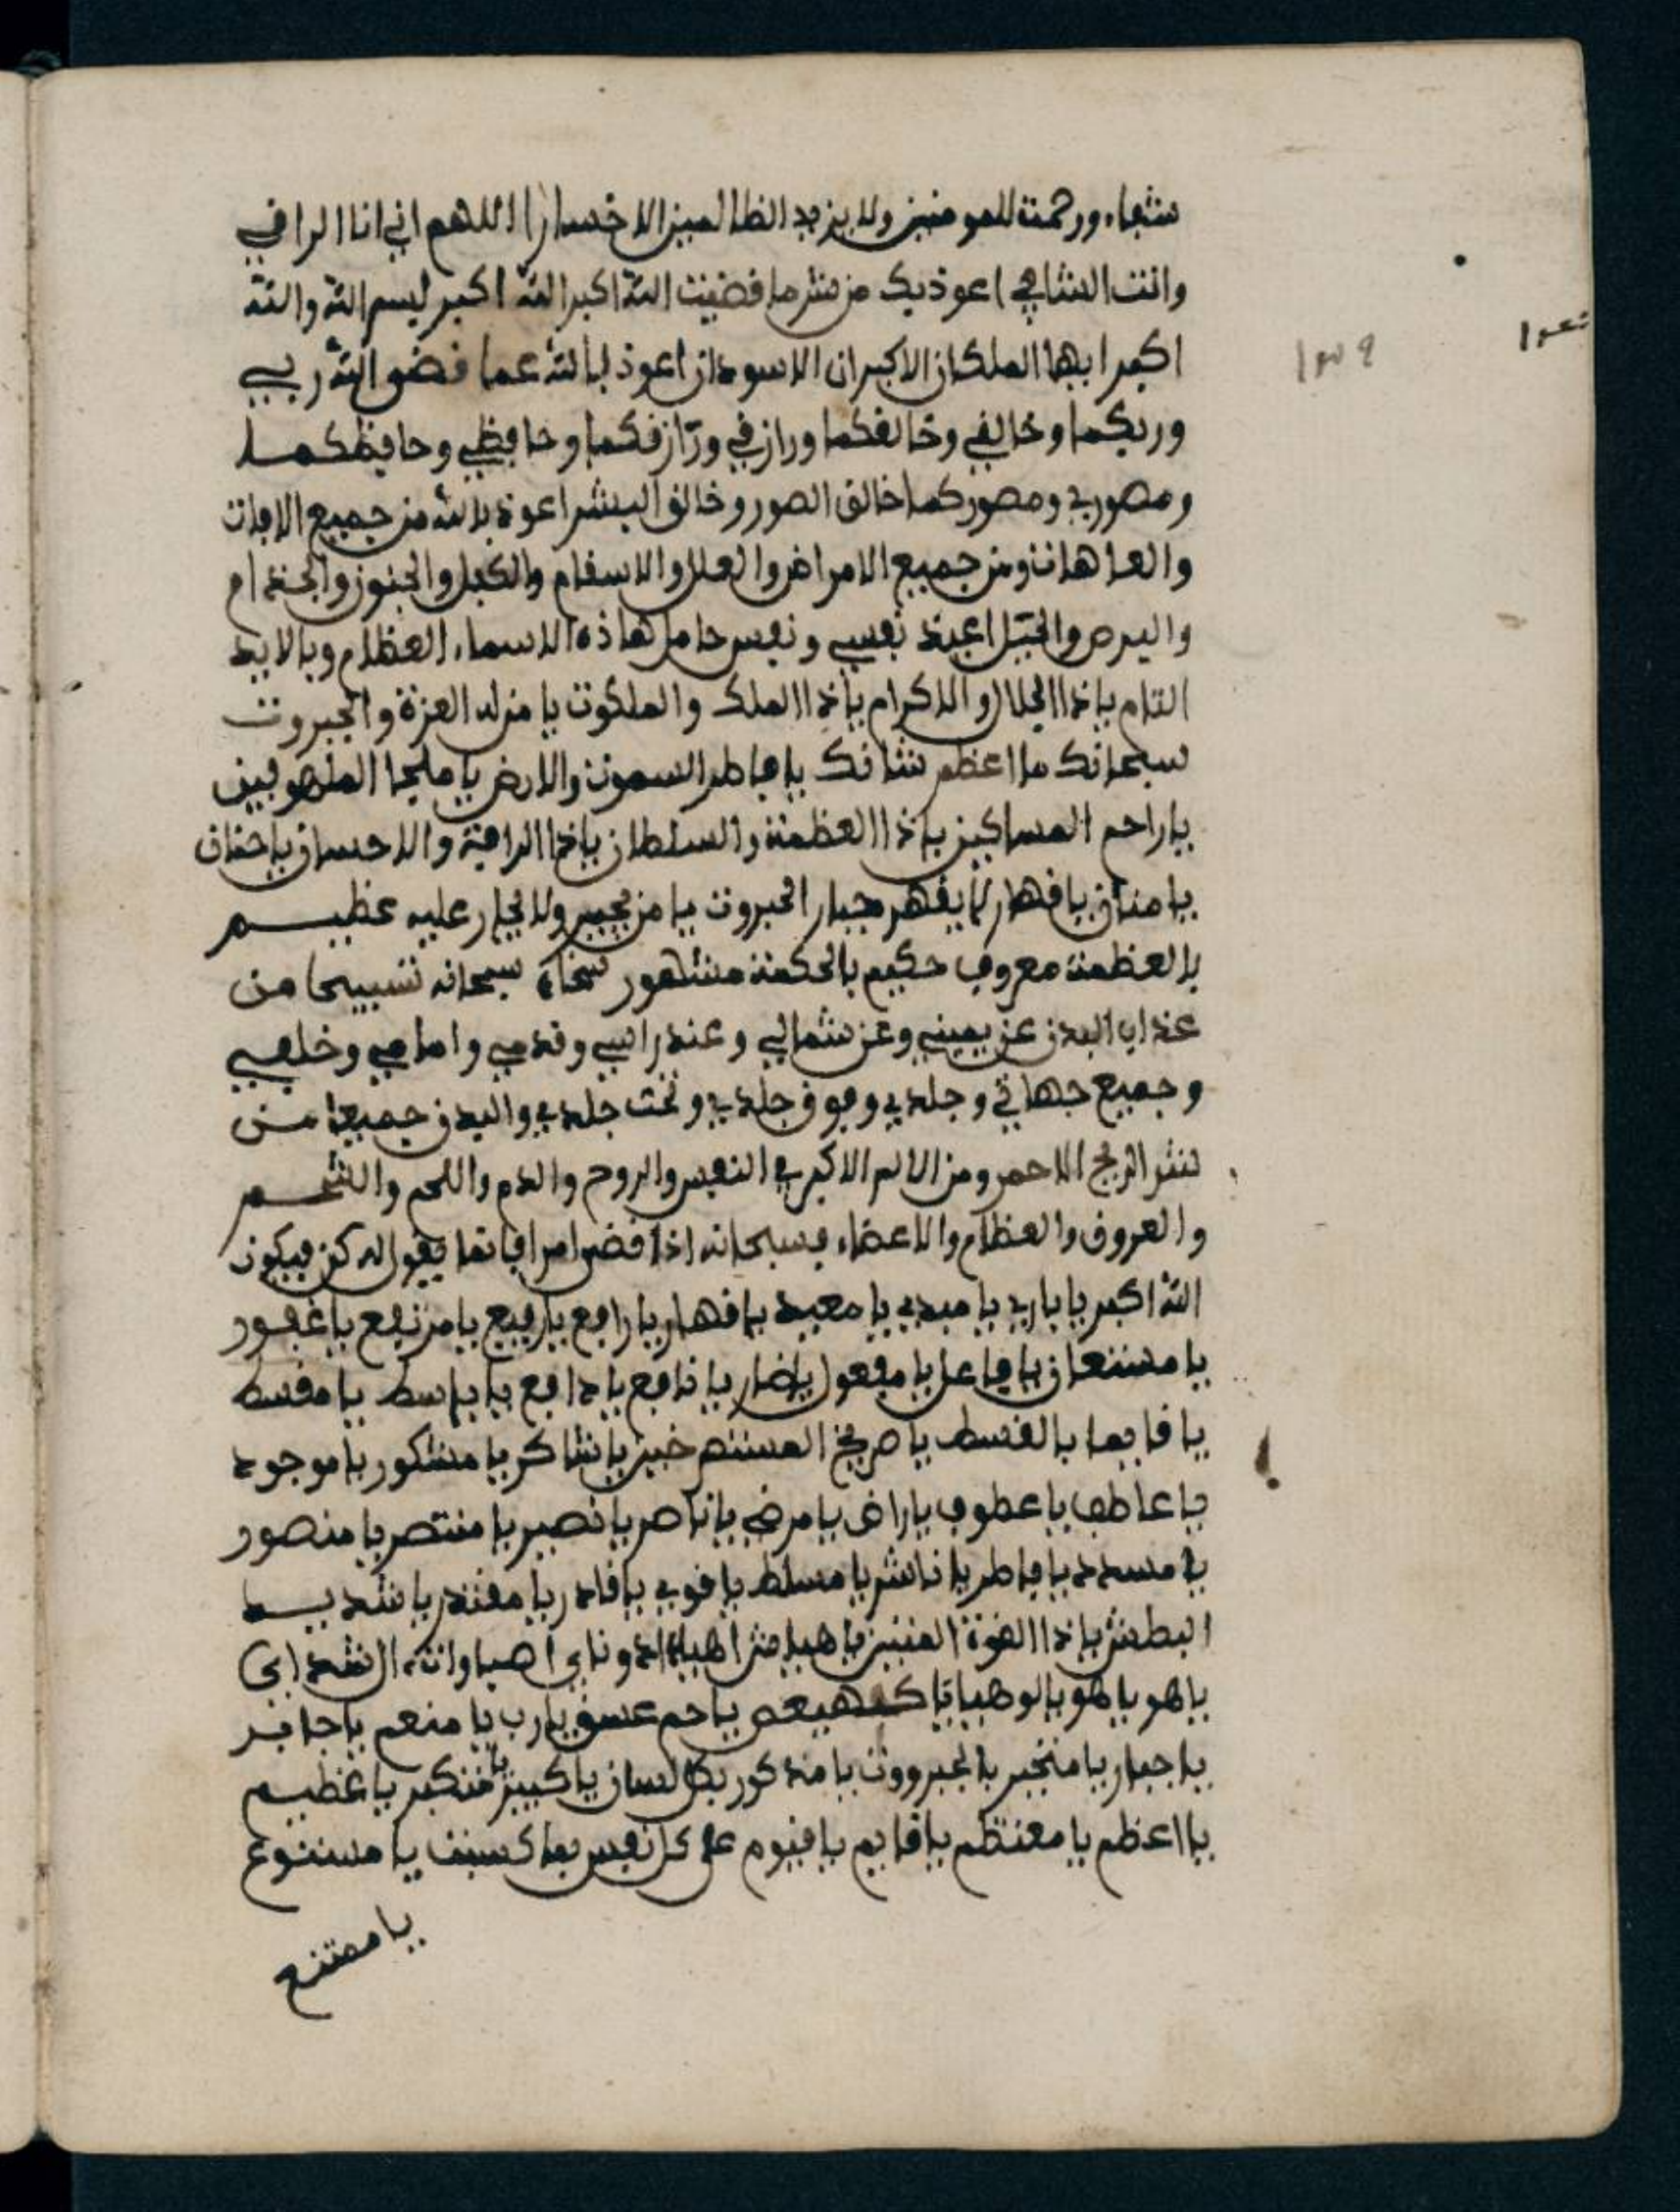 شفاء ورحمة للمومنين ولا يزيد الظالمين الا خسارا اللهم اني انا الراقي
وانت الشافي اعوذ بك من شر ما قضيت الله اكبر الله اكبر بسم الله والله
اكبر ايها الملكان الاكبران الاسودان اعوذ بالله عما قضى الله ربي
وربكما وخالقي وخالقكما ورازقي ورازقكما وحافظي وحافظكما
ومصوري ومصوركما خالق الصور وخالق البشر اعوذ بالله من جميع الافات
والعاهات ومن جميع الامراض والعلل والاسقام والكبل والجنون والجذام
والبرص والخبل اعيذ نفسي ونفس حامل هاذه الاسماء العظام وبالابد
التام يا ذا الجلال والاكرام يا ذا الملك والملكوت يا من له العزة والجبروت
سبحانك ما اعظم شانك يا فاطر السموت والارض يا ملجا الملهوفين
يا راحم المساكين يا ذا العظمة والسلطان يا ذا الرافة والاحسان يا حنان
يا منان يا قهار لا يقهر جبار الجبروت يا من يجير ولا يجار عليه عظيم
بالعظمة معروف حكيم بالحكمة مشهور سبحانه تسبيحا من
عذاب البدن عن يميني وعن شمالي وعند راسي وقدمي وامامي وخلفي
وجميع جهاتي وجلدي وفوق جلدي وتحت جلدي والبدن جميعا من
شر الريح الاحمر ومن الالم الاكبر في النفس والروح والدم واللحم والشحم
والعروق والعظام والاعضاء فسبحانه اذا قضى امرا فانما يقول له كن فيكون
الله اكبر يا باري يا مبدي يا معيد يا قهار يا رافع يا رفيع يا مرتفع يا غفور
يا مستعان يا فاعل يا مفعول يا ضار يا نافع يا دافع يا باسط يا مقسط
يا قايما بالقسط يا صريخ المستصرخين يا شاكر يا مشكور يا موجود
يا عاطف يا عطوف يا راض يا مرضي يا ناصر يا نصير يا منتصر يا منصور
يا مسدد يا فاطر يا ناشر يا مسلط يا قوي يا قادر يا مقتدر يا شديد
البطش يا ذا القوة المتين يا هيا شراهيا ادوناي اصباوث ال شداي
يا هو يا هو يا لوهيا يا كهيعص يا حم عسق يا رب يا منعم يا جابر
يا جبار يا متجبر بالجبرووت يا مذكور بكل لسان يا كبير يا متكبر يا عظيم
يا اعظم يا معتظم يا قايم يا قيوم على كل نفس بما كسبت يا مستنوع
يا ممتنع